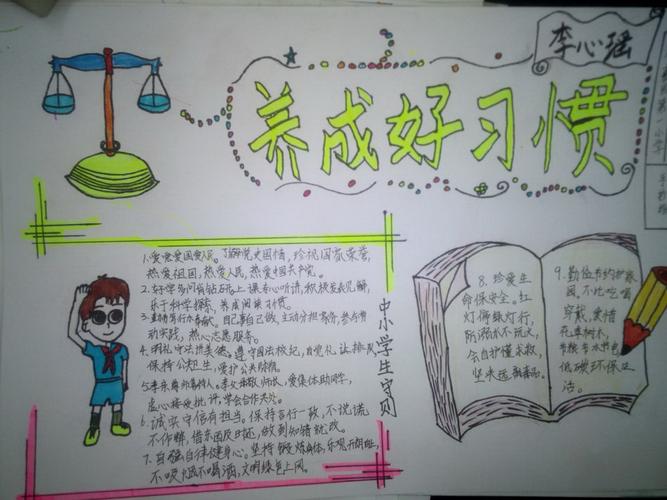 李心瑶
养成好习惯
中小学生守则
1.爱党爱国爱人民。了解党史国情，珍视国家荣誉，
热爱祖国，热爱人民，热爱中国共产党。
2.好学多问肯钻研。上课专心听讲，积极发表见解，
乐于科学探索，养成阅读习惯。
3.勤劳笃行乐奉献。自己事自己做，主动分担家务，参与劳
动实践，热心志愿服务。
4.明礼守法讲美德。遵守国法校纪，自觉礼让排队，
保持公共卫生，爱护公共财物。
5.孝亲尊师善待人。孝父母敬师长，爱集体助同学，
虚心接受批评，学会合作共处。
6.诚实守信有担当。保持言行一致，不说谎
不作弊，借东西及时还，做到知错就改。
7.自强自律健身心。坚持锻炼身体，乐观开朗向上，
不吸烟不喝酒，文明绿色上网。
8.珍爱生
命保安全。红
灯停绿灯行，
防溺水不玩火，
会自护懂求救，
坚决远离毒品。
9.勤俭节约护家
园。不比吃喝
穿戴，爱惜
花草树木，
节粮节水节电
低碳环保生
活。